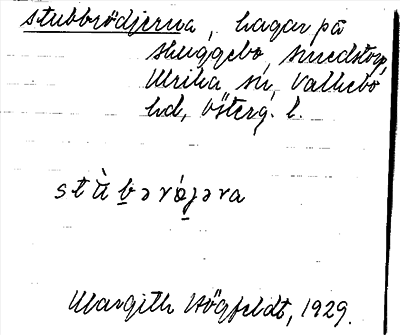 stubbrödjerna, hagar på
Skuggebo, Smedstorp,
Ulrika sn, Valkebo
hd, Österg. l.
stὰbərǿjəra
Margith Högfeldt, 1929.